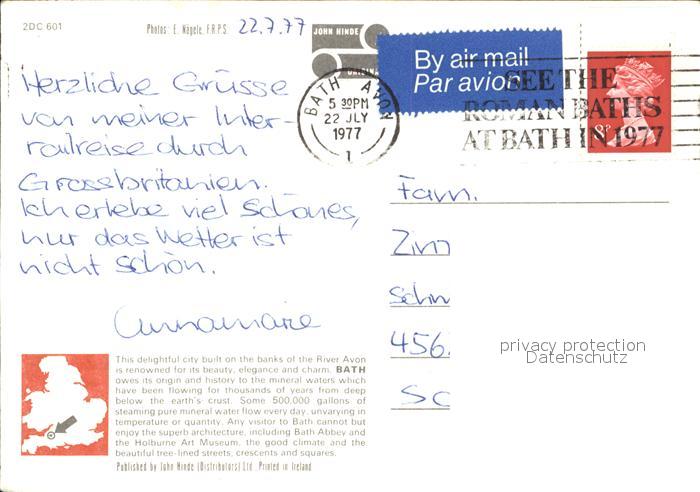 2DC 601
Photos: E. Nägele, F.R.P.S.
22.7.77
JOHN HINDE
ORIGINAL
By air mail
Par avion
BATH AVON
5 30PM
22 JLY
1977
1
SEE THE
ROMAN BATHS
AT BATH IN 1977
8P
Herzliche Grüsse
von meiner Inter-
railreise durch
Grossbritanien.
Ich erlebe viel Schönes,
nur das Wetter ist
nicht schön.
Annamarie
Fam.
Zin
Schn
456
Sc
privacy protection
Datenschutz
This delightful city built on the banks of the River Avon
is renowned for its beauty, elegance and charm. BATH
owes its origin and history to the mineral waters which
have been flowing for thousands of years from deep
below the earth's crust. Some 500,000 gallons of
steaming pure mineral water flow every day, unvarying in
temperature or quantity. Any visitor to Bath cannot but
enjoy the superb architecture, including Bath Abbey and
the Holburne Art Museum, the good climate and the
beautiful tree-lined streets, crescents and squares.
Published by John Hinde (Distributors) Ltd. Printed in Ireland